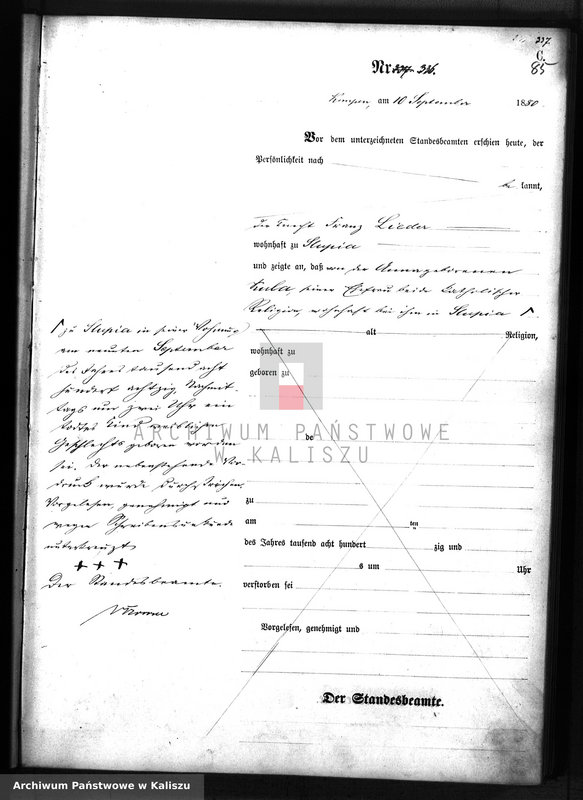 237.
C.
85
Nr. 336.
Kempen, am 10 September 1880
Vor dem unterzeichneten Standesbeamten erschien heute, der
Persönlichkeit nach
be kannt,
der Knecht Franz Lieder
wohnhaft zu Slupia
und zeigte an, daß von der Anna geborenen
Kula, seiner Ehefrau beide katholischer
Religion, wohnhaft bei ihm in Slupia
zu Slupia in seiner Wohnung
am neunten September
des Jahres tausend acht
hundert achtzig Nachmit-
tags um zwei Uhr ein
todtes Kind weiblichen
Geschlechts geboren worden
sei. Der nebenstehende Vor-
druck wurde durchstrichen.
Vorgelesen, genehmigt und
wegen Schreibensunkunde
unterkreuzt
+++
Der Standesbeamte.
alt Religion,
wohnhaft zu
geboren zu
de
zu
am ten
des Jahres tausend acht hundert zig und
s um Uhr
verstorben sei
Vorgelesen, genehmigt und
Der Standesbeamte.
ARCHIWUM PAŃSTWOWE
W KALISZU
Archiwum Państwowe w Kaliszu